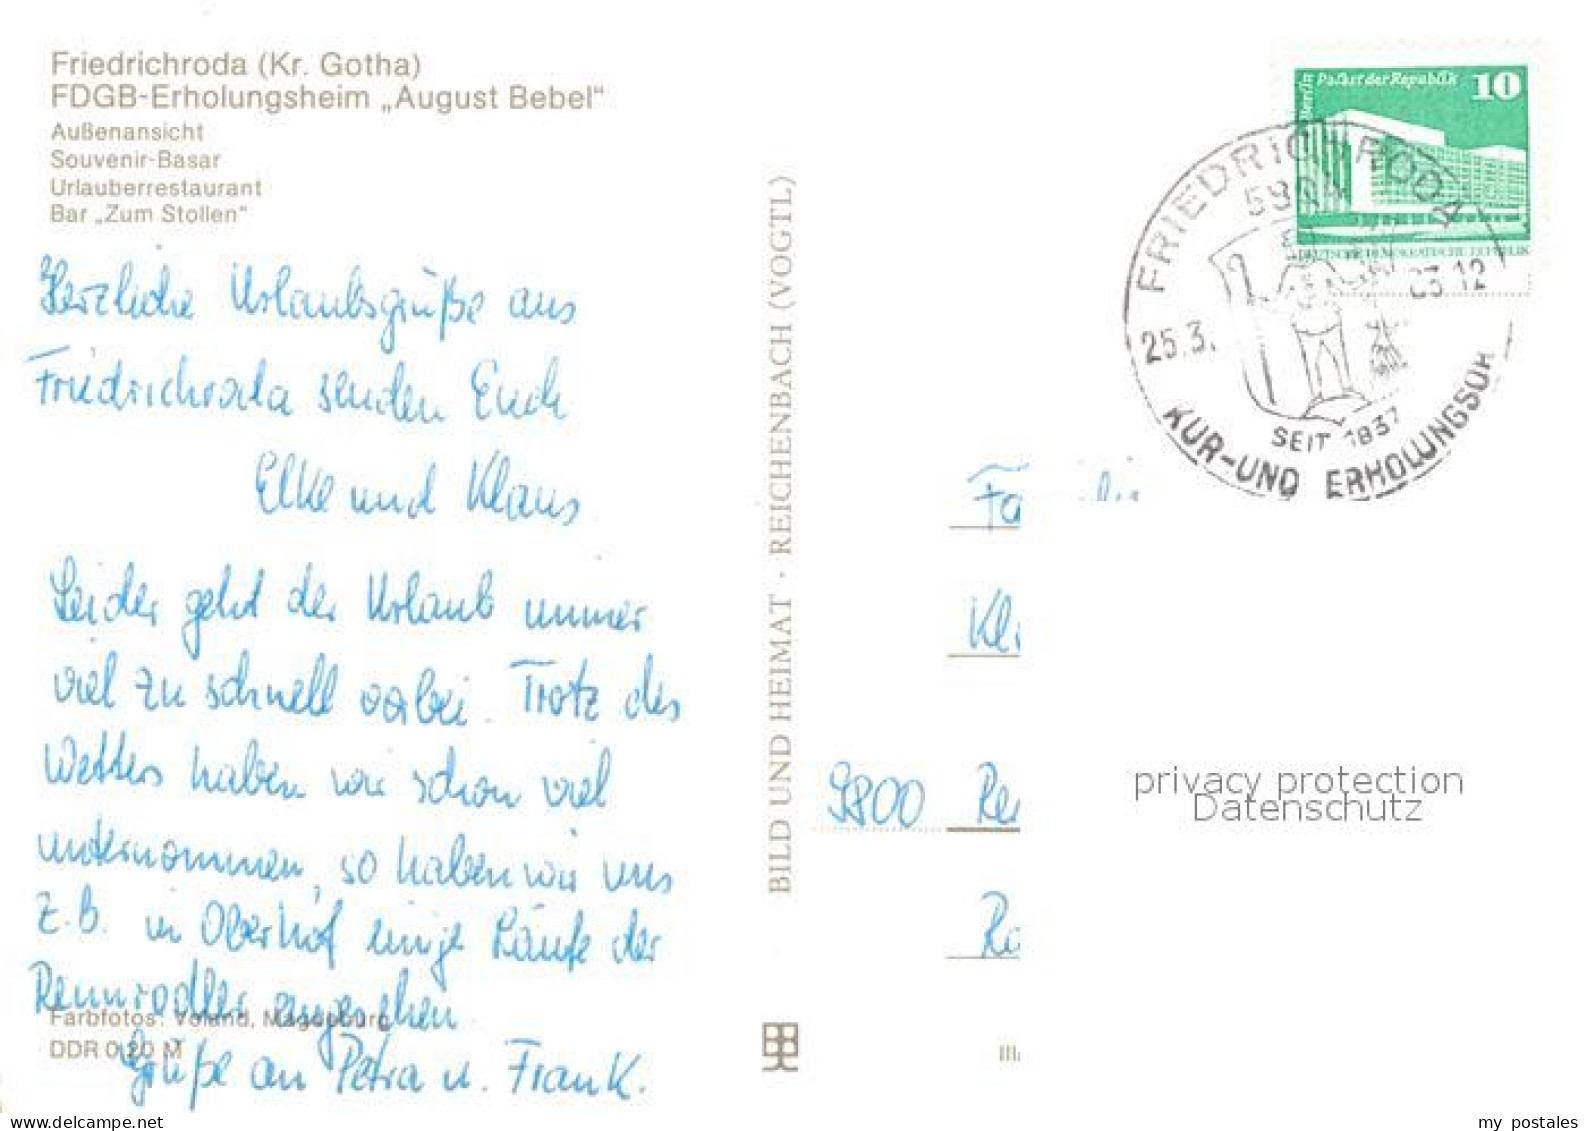 Friedrichroda (Kr. Gotha)
FDGB-Erholungsheim „August Bebel“
Außenansicht
Souvenir-Basar
Urlauberrestaurant
Bar „Zum Stollen“
Herzliche Urlaubsgrüße aus
Friedrichroda senden Euch
Elke und Klaus
Leider geht der Urlaub immer
viel zu schnell vorbei. Trotz des
Wetters haben wir schon viel
unternommen, so haben wir uns
z.B. in Oberhof einige Läufe der
Rennrodler angesehen
Grüße an Petra u. Frank.
Farbfotos: Voland, Magdeburg
DDR 0,20 M
BILD UND HEIMAT · REICHENBACH (VOGTL)
Berlin Palast der Republik 10
DEUTSCHE DEMOKRATISCHE REPUBLIK
FRIEDRICHRODA
25.3.
SEIT 1837
KUR-UND ERHOLUNGSOR
Fa
Kl
9800 Re
Ro
privacy protection
Datenschutz
www.delcampe.net
my_postales